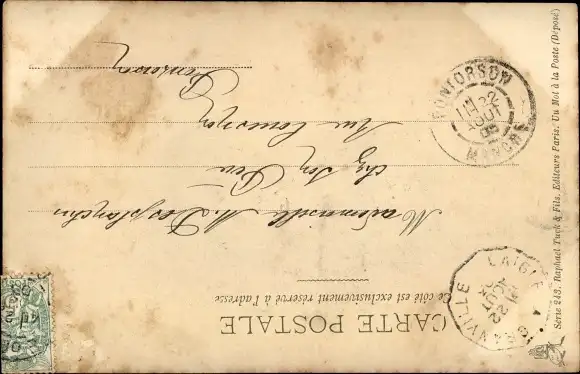 CARTE POSTALE
Ce côté est exclusivement réservé à l'adresse
Mademoiselle M. Desplanches
chez son Père
Rue Couesnon
Pontorson
PONTORSON
22
AOUT
MANCHE
LAIGLE A GRANVILLE
22
AOUT
Série 243. Raphael Tuck & Fils. Editeurs Paris. Un Mot à la Poste (Déposé)